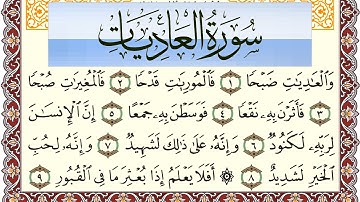 سورة العاديات
وَالْعَادِيَاتِ ضَبْحًا ١ فَالْمُورِيَاتِ قَدْحًا ٢ فَالْمُغِيرَاتِ صُبْحًا
٣ فَأَثَرْنَ بِهِ نَقْعًا ٤ فَوَسَطْنَ بِهِ جَمْعًا ٥ إِنَّ الْإِنسَانَ
لِرَبِّهِ لَكَنُودٌ ٦ وَإِنَّهُ عَلَىٰ ذَٰلِكَ لَشَهِيدٌ ٧ وَإِنَّهُ لِحُبِّ
الْخَيْرِ لَشَدِيدٌ ٨ ۞ أَفَلَا يَعْلَمُ إِذَا بُعْثِرَ مَا فِي الْقُبُورِ ٩